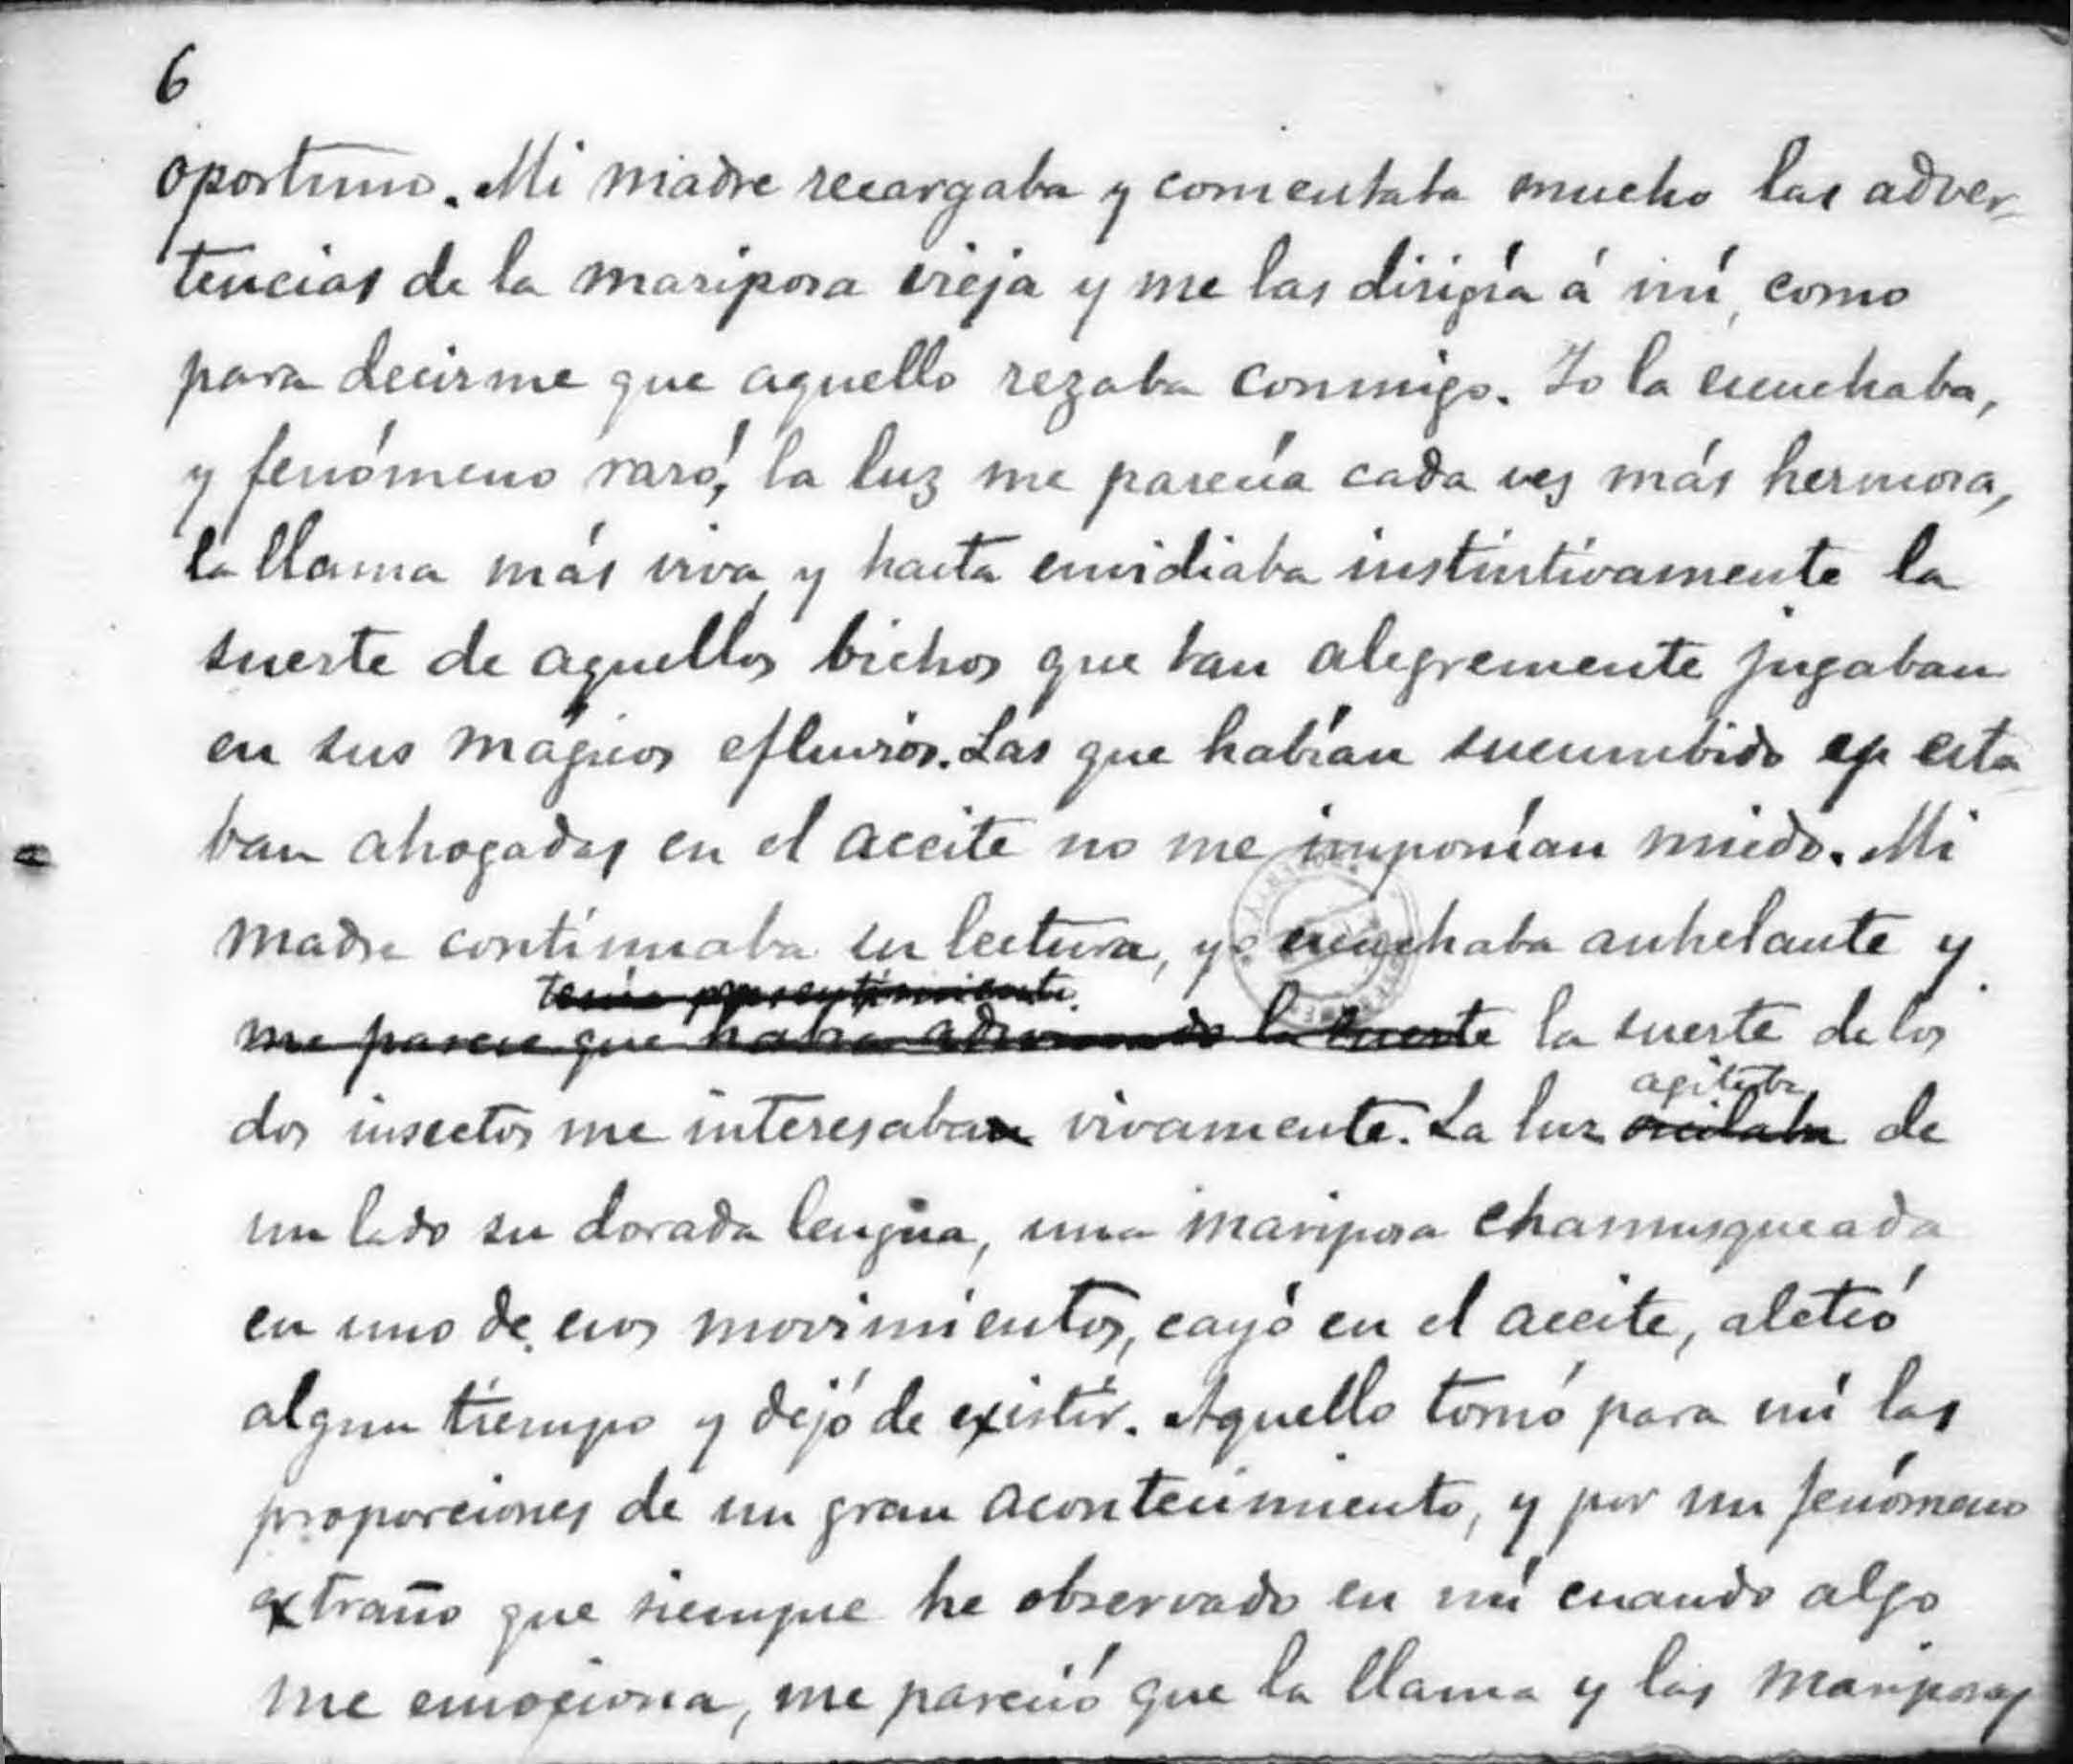 6
oportuno. Mi madre recargaba y comentaba mucho las adver-
tencias de la mariposa vieja y me las dirigía á mí, como
para decirme que aquello rezaba conmigo. Yo la escuchaba,
y fenómeno raro, la luz me parecía cada vez más hermosa,
la llama más viva, y hasta envidiaba instintivamente la
suerte de aquellos bichos que tan alegremente jugaban
en sus mágicos efluvios. Las que habían sucumbido y esta-
ban ahogadas en el aceite no me imponían miedo. Mi
madre continuaba su lectura, yo escuchaba anhelante y
tenía presentimiento
me parece que había adivinado la suerte la suerte de los
agitaba
dos insectos me interesaba vivamente. La luz oscilaba de
un lado su dorada lengua, una mariposa chamusqueada
en uno de esos movimientos, cayó en el aceite, aleteó
algun tiempo y dejó de existir. Aquello tomó para mí las
proporciones de un gran acontecimiento, y por un fenómeno
extraño que siempre he observado en mí cuando algo
me emociona, me pareció que la llama y las mariposas